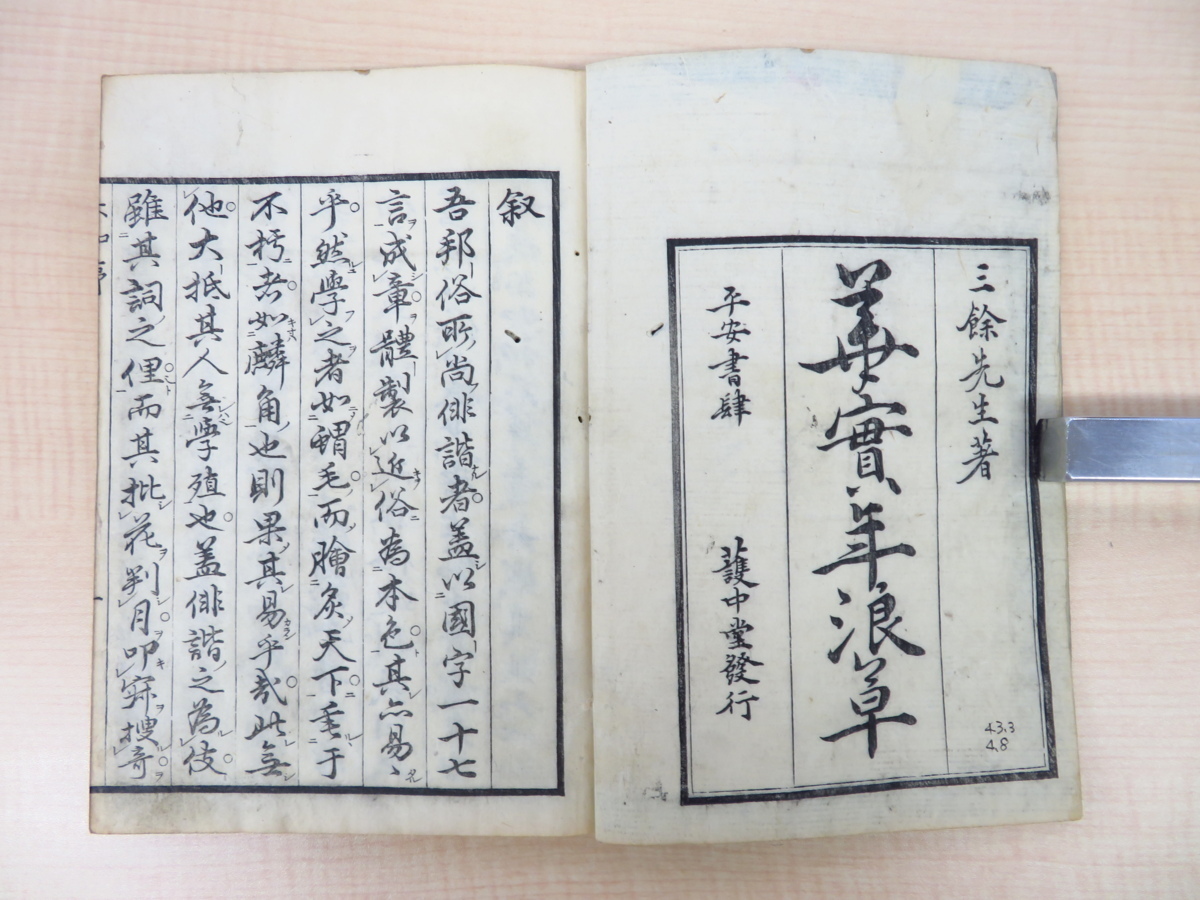 三餘先生著
華實年浪草
平安書肆 護中堂發行
43.3
4.8
叙
吾邦俗所尚俳諧者盖以國字一十七
言成章體製以近俗為本色其亦易〻
乎然學之者如蝟毛而膾炙天下垂于
不朽者如麟角也則果其易乎哉此無
他大抵其人無學殖也盖俳諧之為伎
雖其詞之俚而其批花判月叩寂搜奇